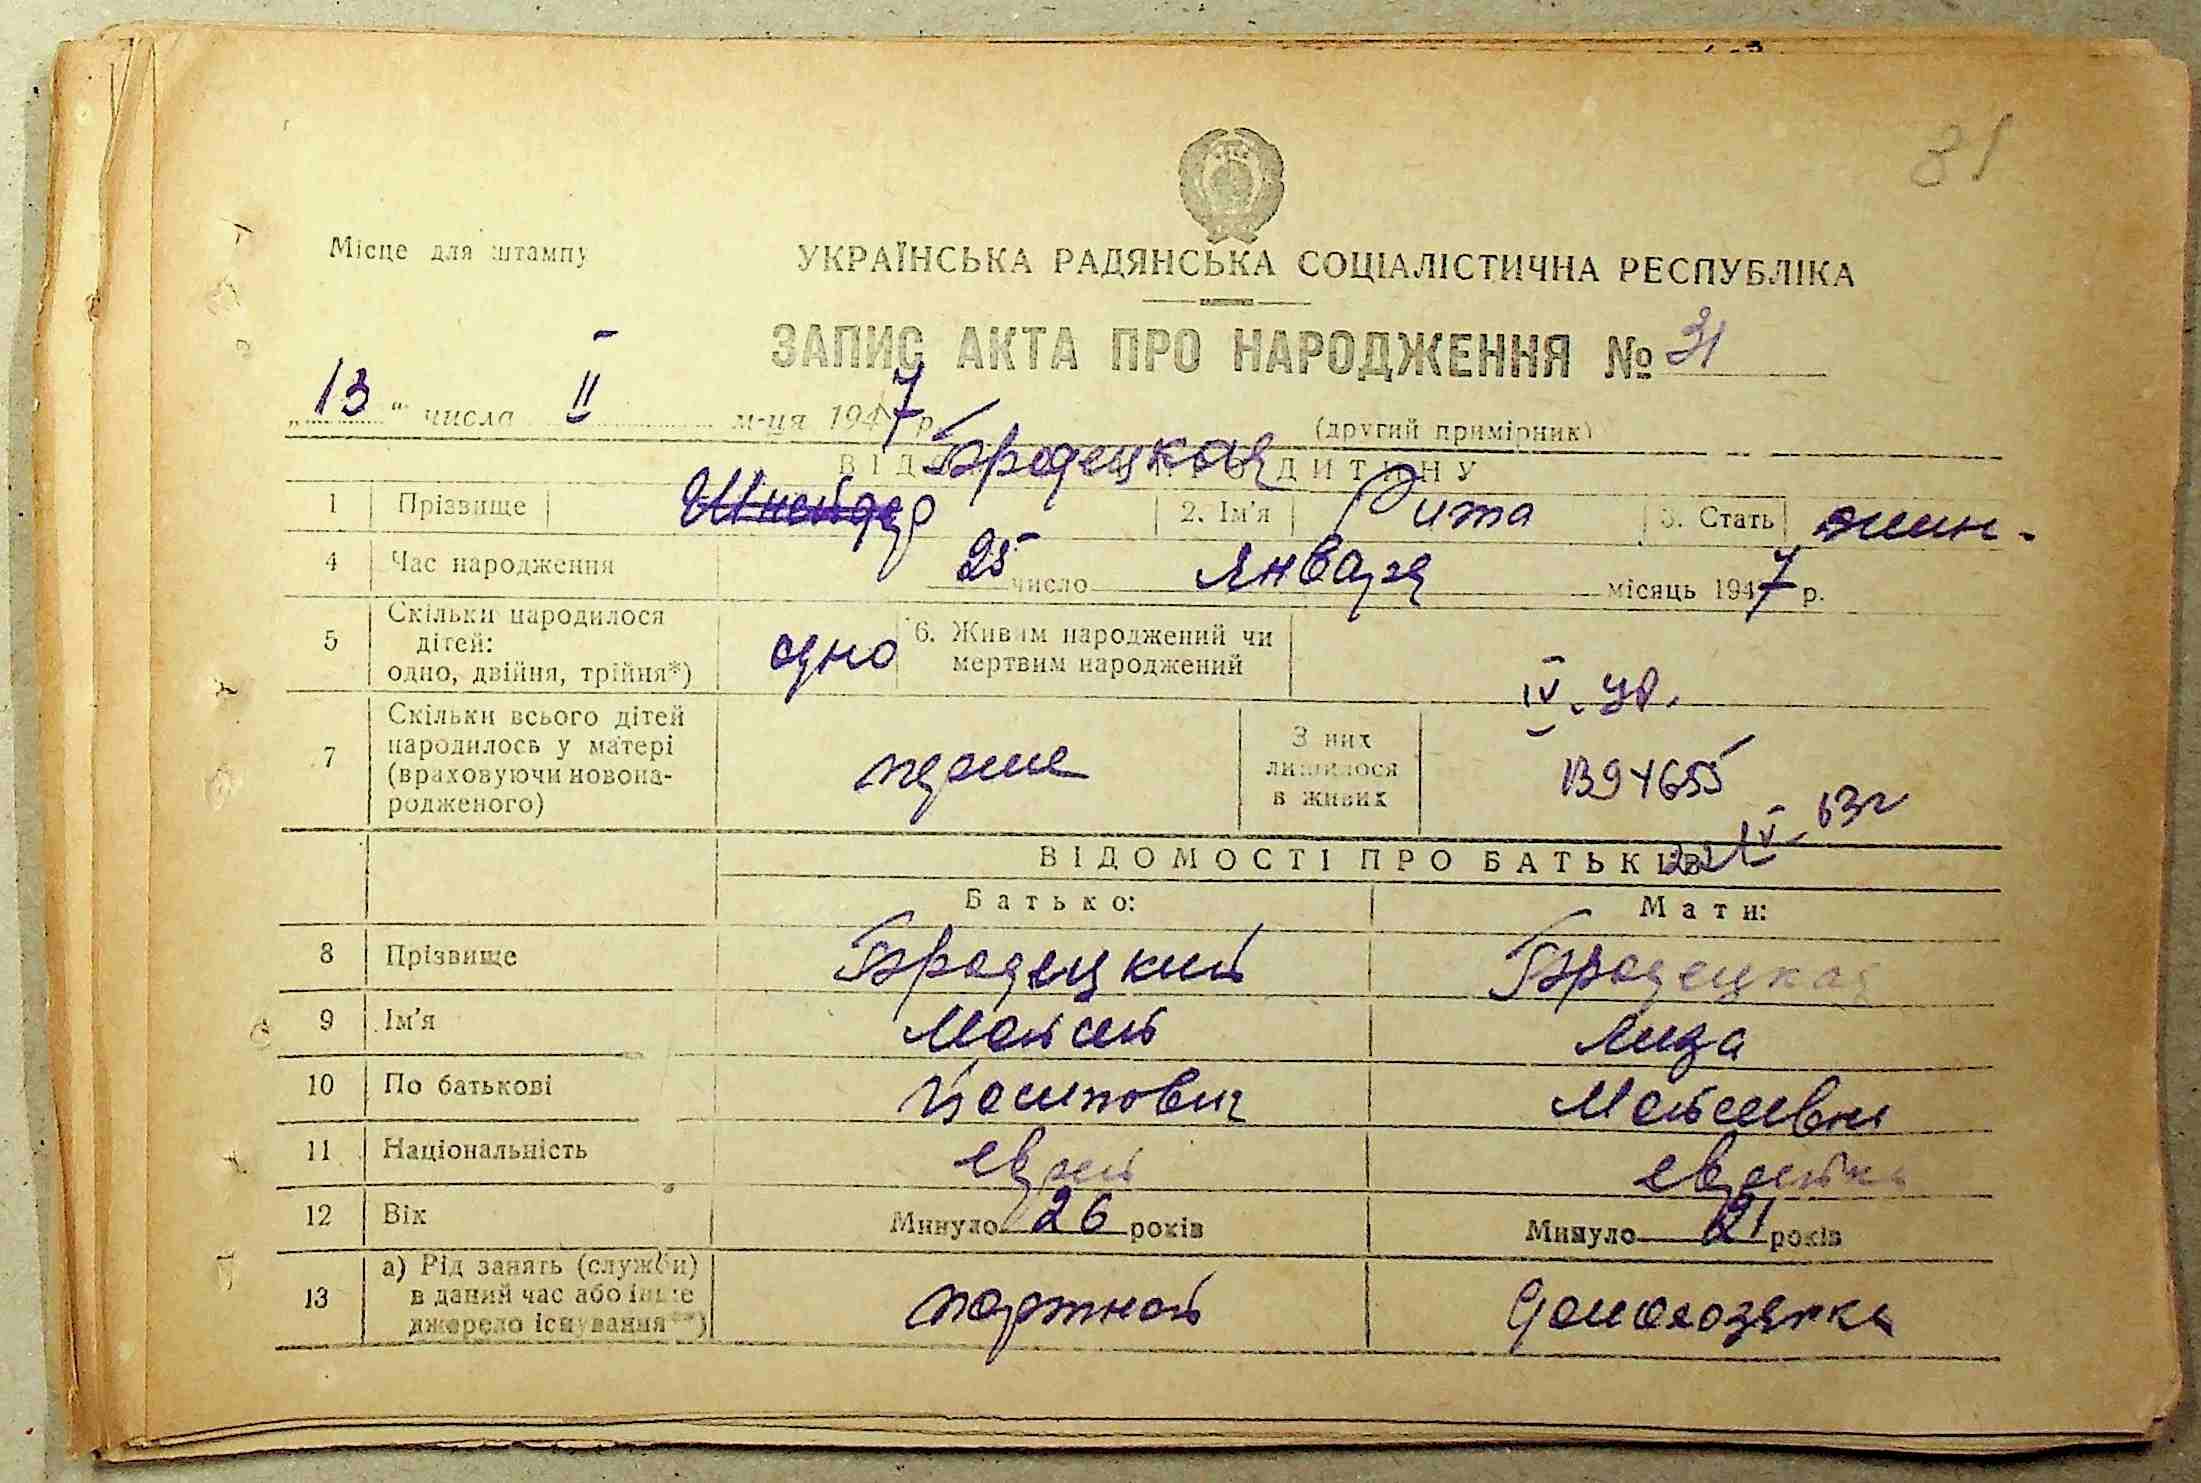 31
Місце для штампу
УКРАЇНСЬКА РАДЯНСЬКА СОЦІАЛІСТИЧНА РЕСПУБЛІКА
ЗАПИС АКТА ПРО НАРОДЖЕННЯ № 31
„13“ числа II м-ця 1947 р.
(другий примірник)
Бродецкая
ВІД ДИТИНУ
1 Прізвище Шнейдер 2. Ім'я Рита 3. Стать жин.
4 Час народження 25 число января місяць 1947 р.
5 Скільки народилося дітей: одно, двійня, трійня*) одно 6. Живим народжений чи мертвим народжений
7 Скільки всього дітей народилось у матері (враховуючи новонародженого) перше З них лишилося в живих
63г
ВІДОМОСТІ ПРО БАТЬКІВ
Батько: Мати:
8 Прізвище Бродецкий Бродецкая
9 Ім'я Мойсей Лиза
10 По батькові Йосипович Мойсеивна
11 Національність еврей еврейка
12 Вік Минуло 26 років Минуло 21 років
13 а) Рід занять (служби) в даний час або інше джерело існування**) портной домохозяйка